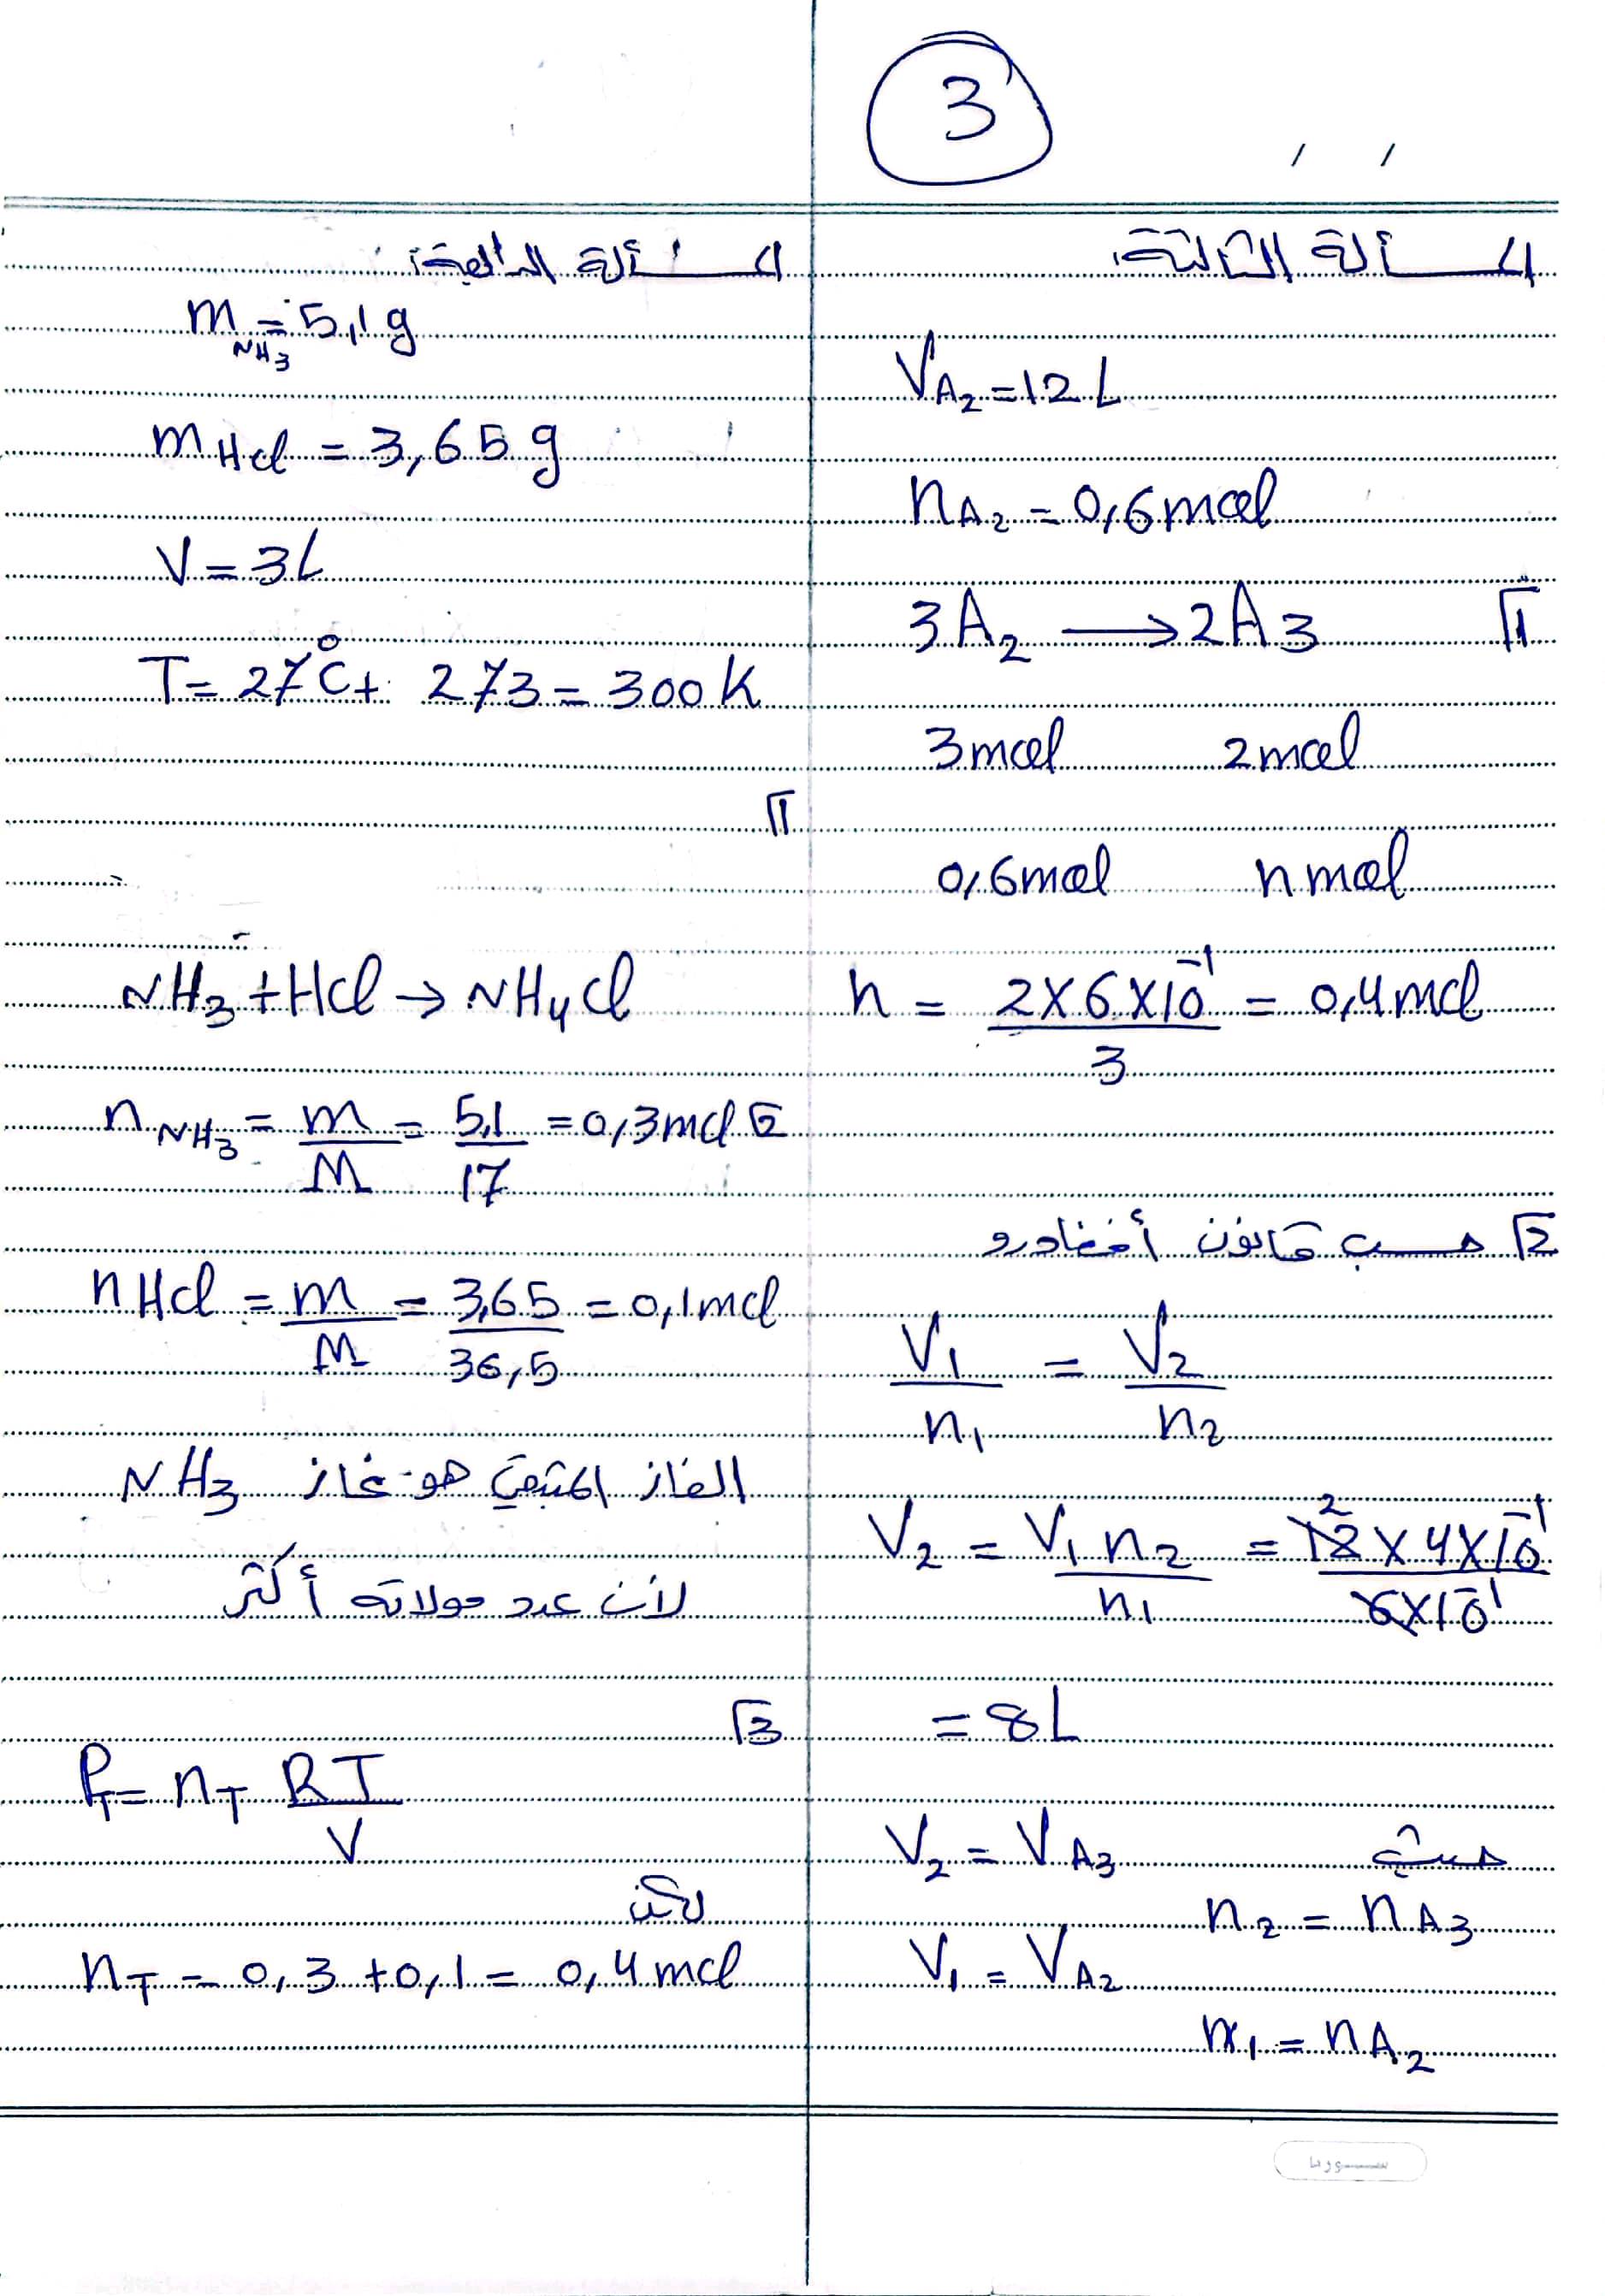 3
/ /
المسألة الثالثة:
V_A₂ = 12 L
n_A₂ = 0,6 mol
1 3A₂ → 2A₃
3 mol 2 mol
0,6 mol n mol
n = 2×6×10⁻¹ / 3 = 0,4 mol
2 حسب قانون أفغادرو
V₁/n₁ = V₂/n₂
V₂ = V₁ n₂ / n₁ = 12 × 4×10⁻¹ / 6×10⁻¹
2
= 8 L
حيث V₂ = V_A₃
n₂ = n_A₃
V₁ = V_A₂
n₁ = n_A₂
المسألة الرابعة:
m_NH₃ = 5,1 g
m_HCl = 3,65 g
V = 3 L
T = 27°C + 273 = 300 K
1
NH₃ + HCl → NH₄Cl
2 n_NH₃ = m/M = 5,1/17 = 0,3 mol
n_HCl = m/M = 3,65/36,5 = 0,1 mol
الغاز المتبقي هو غاز NH₃
لأن عدد مولاته أكثر
3
P_T = n_T RT/V
لكن
n_T = 0,3 + 0,1 = 0,4 mol